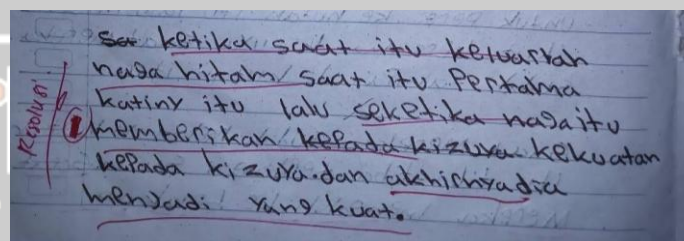 Resolusi
ketika saat itu keluarlah
naga hitam saat itu Pertama
katiny itu lalu seketika naga itu
1 memberikan kepada kizuya kekuatan
kepada kizuya.dan akhirnya dia
menjadi yang kuat.